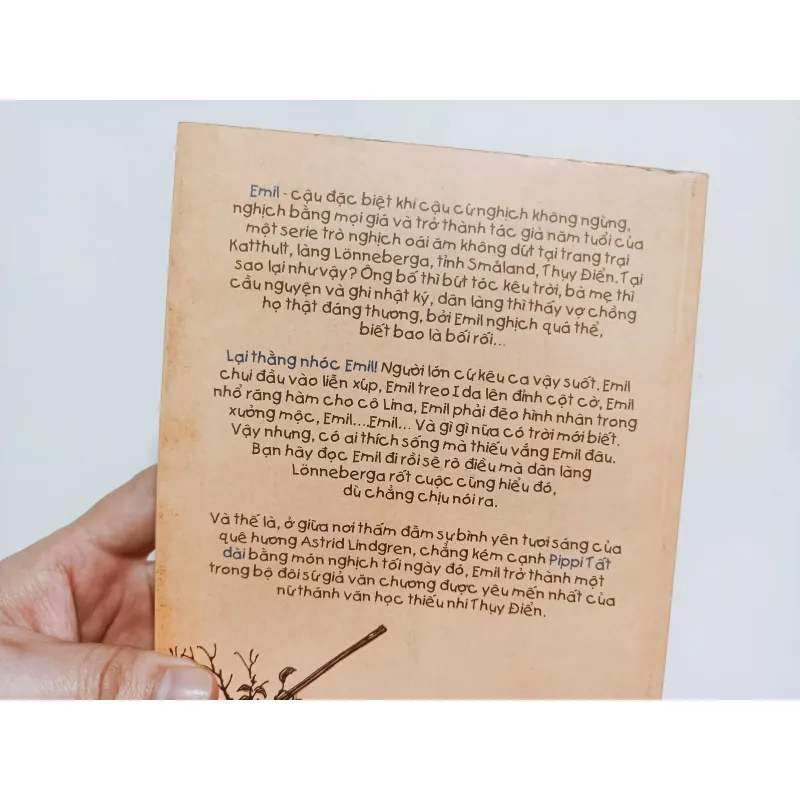 Emil - cậu đặc biệt khi cậu cứ nghịch không ngừng,
nghịch bằng mọi giá và trở thành tác giả năm tuổi của
một serie trò nghịch oái ăm không dứt tại trang trại
Katthult, làng Lönneberga, tỉnh Småland, Thụy Điển. Tại
sao lại như vậy? Ông bố thì bứt tóc kêu trời, bà mẹ thì
cầu nguyện và ghi nhật ký, dân làng thì thấy vợ chồng
họ thật đáng thương, bởi Emil nghịch quá thể,
biết bao là bối rối...
Lại thằng nhóc Emil! Người lớn cứ kêu ca vậy suốt. Emil
chui đầu vào liễn xúp, Emil treo Ida lên đỉnh cột cờ, Emil
nhổ răng hàm cho cô Lina, Emil phải đẽo hình nhân trong
xưởng mộc, Emil....Emil... Và gì gì nữa có trời mới biết.
Vậy nhưng, có ai thích sống mà thiếu vắng Emil đâu.
Bạn hãy đọc Emil đi rồi sẽ rõ điều mà dân làng
Lönneberga rốt cuộc cũng hiểu đó,
dù chẳng chịu nói ra.
Và thế là, ở giữa nơi thấm đẫm sự bình yên tươi sáng của
quê hương Astrid Lindgren, chẳng kém cạnh Pippi Tất
dài bằng món nghịch tối ngày đó, Emil trở thành một
trong bộ đôi sứ giả văn chương được yêu mến nhất của
nữ thánh văn học thiếu nhi Thụy Điển.